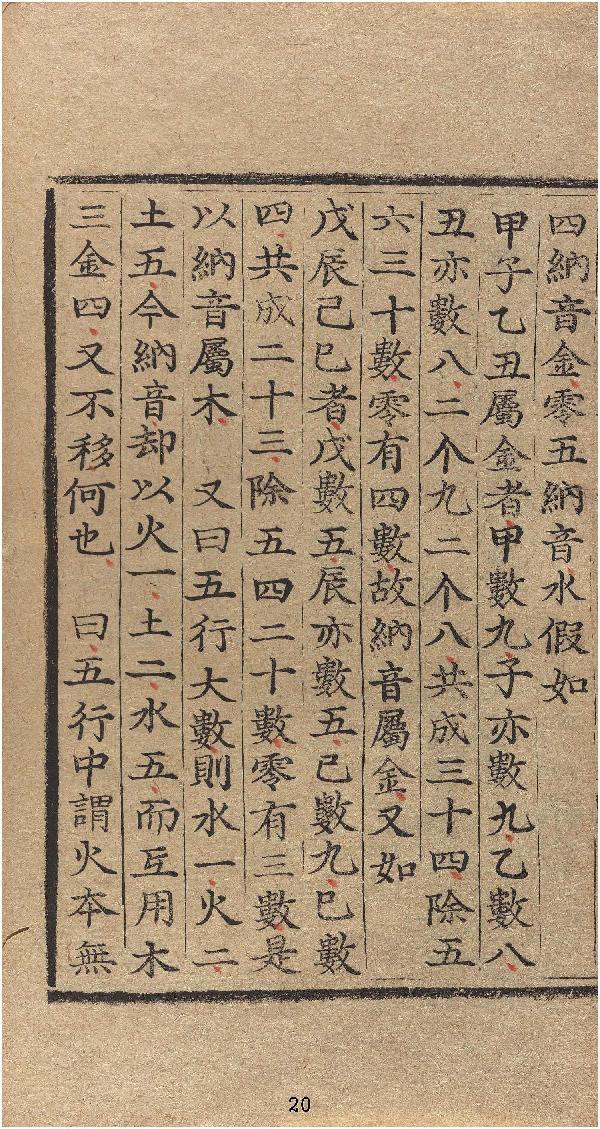 四納音金零五納音水假如
甲子乙丑屬金者甲數九子亦數九乙數八
丑亦數八二个九二个八共成三十四除五
六三十數零有四數故納音屬金又如
戊辰己巳者戊數五辰亦數五己數九巳數
四共成二十三除五四二十數零有三數是
以納音屬木 又曰五行大數則水一火二
土五今納音却以火一土二水五而互用木
三金四又不移何也 曰五行中謂火本無
20